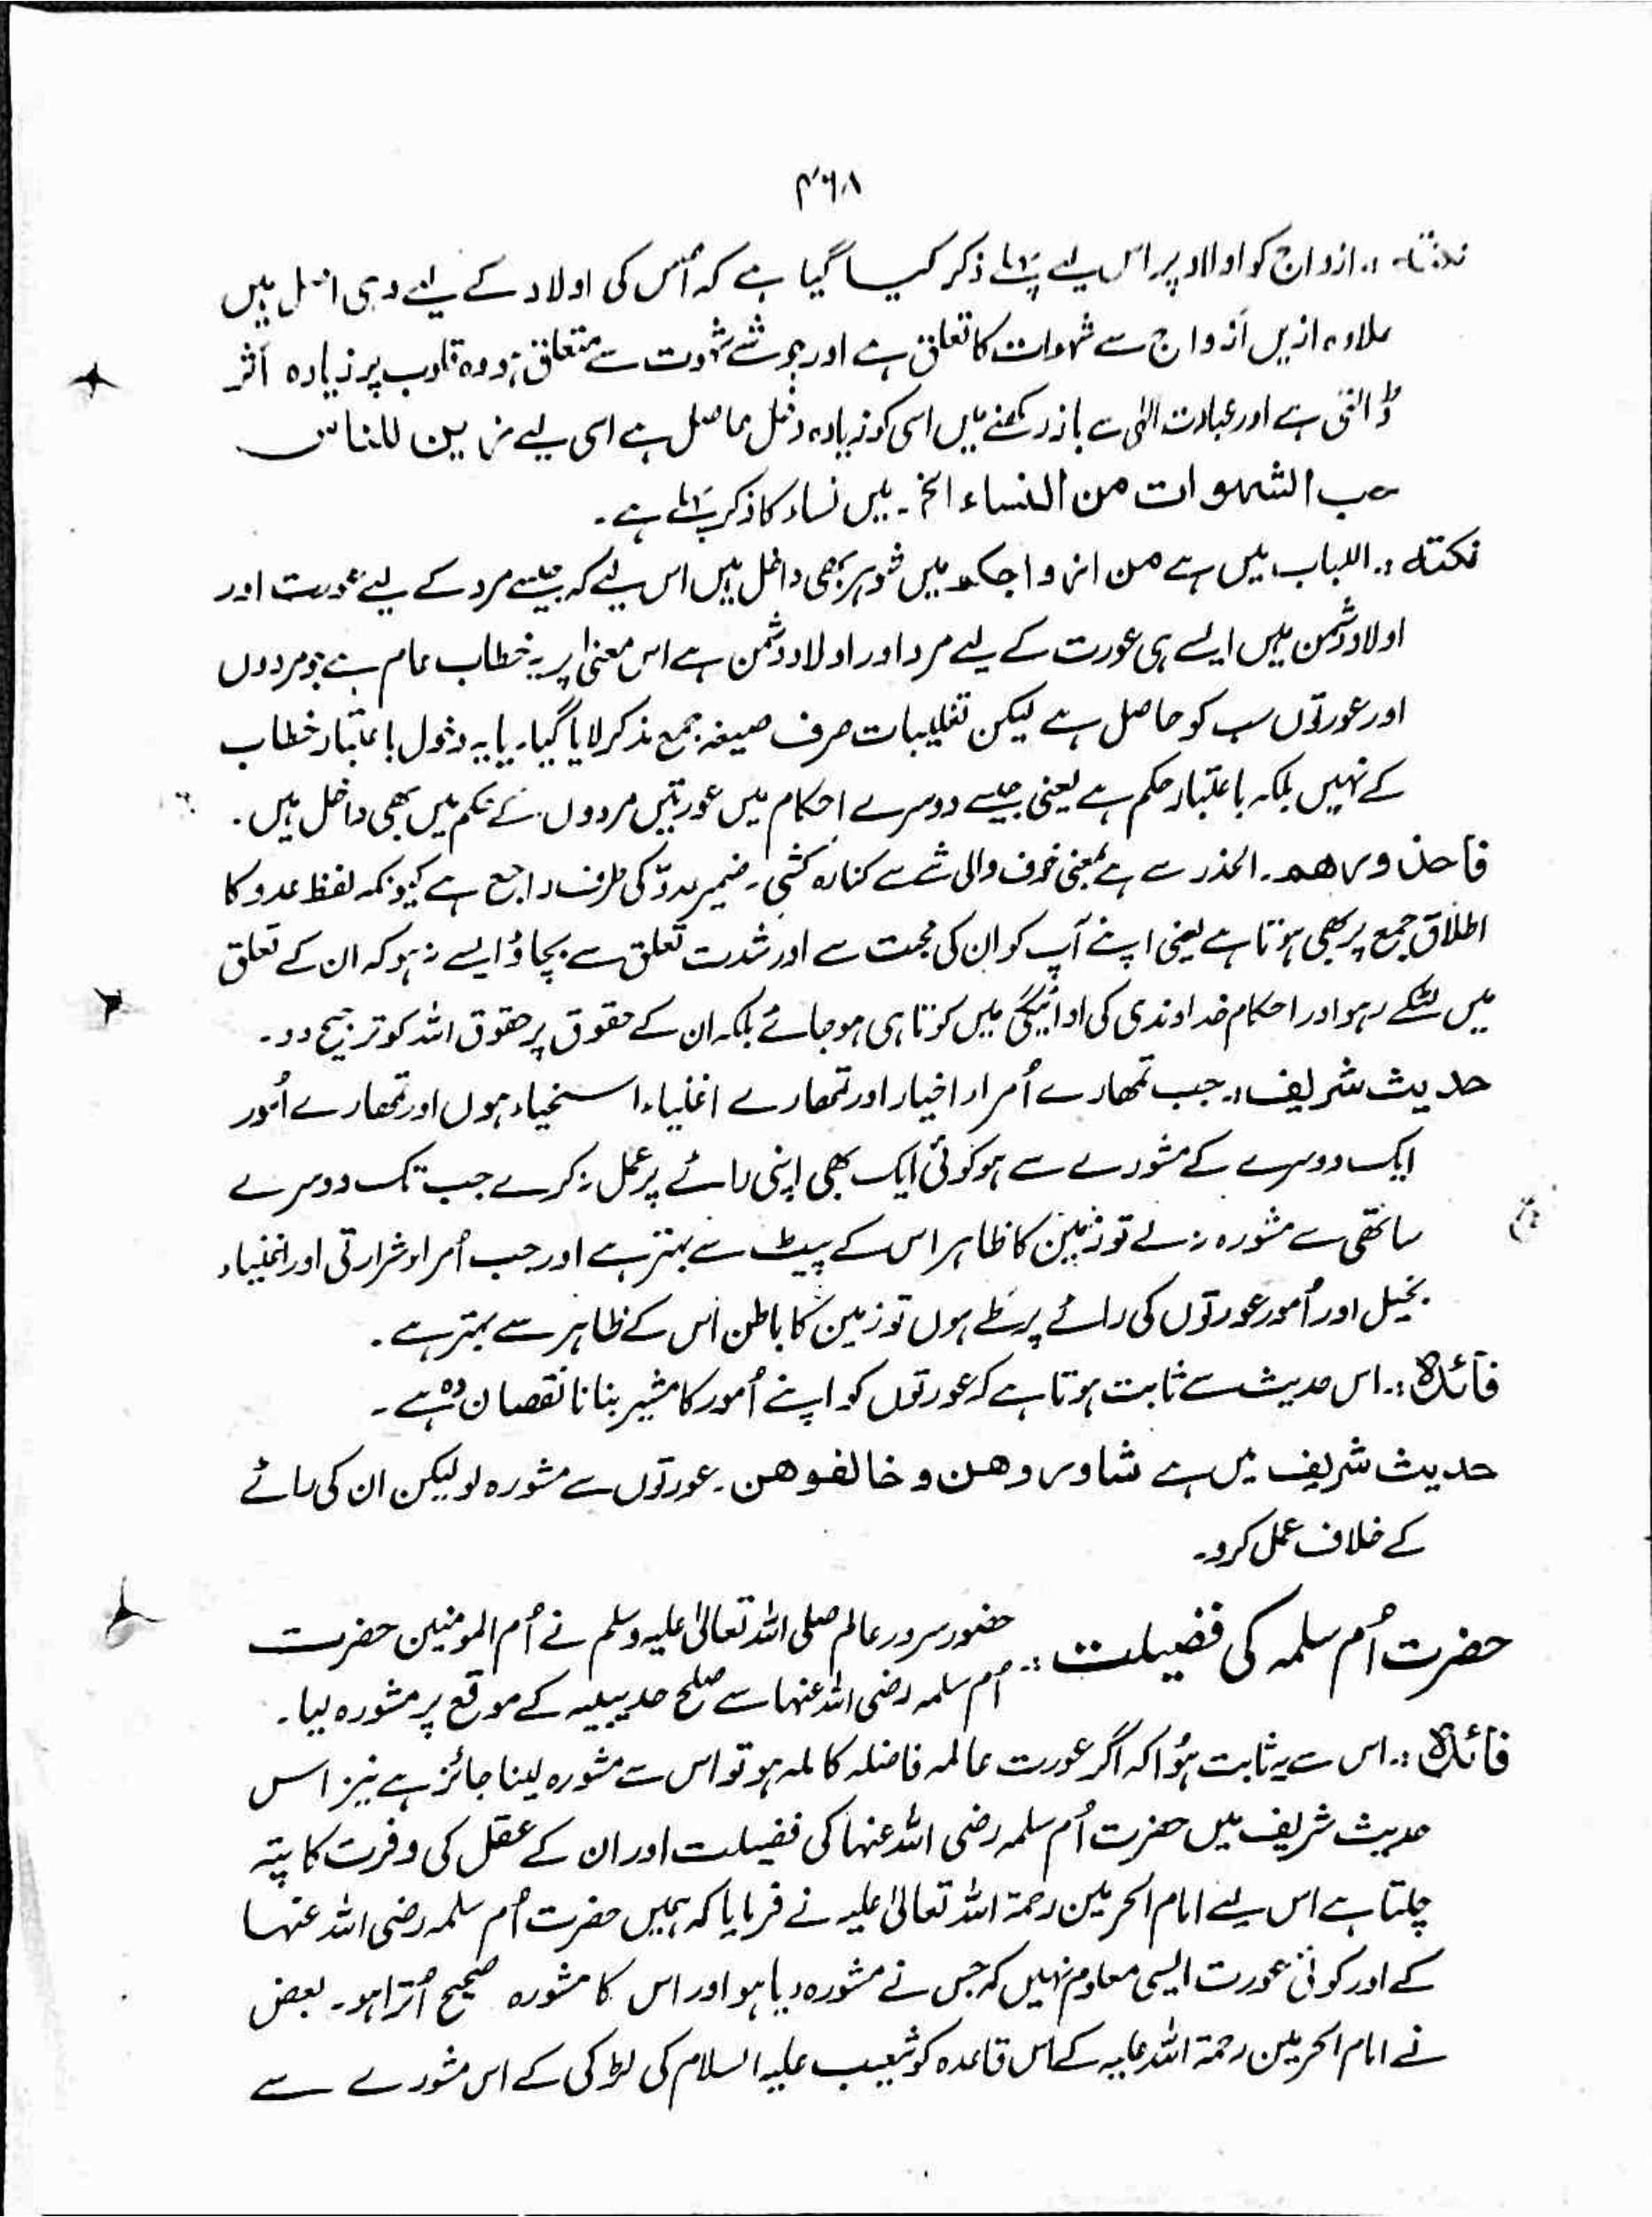 ۴۶۸
نکتہ :۔ ازواج کو اولاد پر اس لیے پہلے ذکر کیا گیا ہے کہ اُس کی اولاد کے لیے وہی اصل ہیں
علاوہ ازیں ازواج سے شہوات کا تعلق ہے اور جو شے شہوت سے متعلق ہو وہ قلوب پر زیادہ اَثر
ڈالتی ہے اور عبادت الٰہی سے باز رکھنے میں اسی کو زیادہ دخل حاصل ہے اسی لیے زین للناس
حب الشہوات من النساء الخ ۔ میں نساء کا ذکر پہلے ہے ۔
نکتہ :۔ اللباب میں ہے من ازواجکم میں شوہر بھی داخل ہیں اس لیے کہ جیسے مرد کے لیے عورت اور
اولاد دشمن ہیں ایسے ہی عورت کے لیے مرد اور اولاد دشمن ہے اس معنیٰ پر یہ خطاب عام ہے جو مردوں
اور عورتوں سب کو حاصل ہے لیکن تغلیبات صرف صیغہ جمع مذکر لایا گیا۔ یا یہ دخول باعتبار خطاب
کے نہیں بلکہ باعتبار حکم ہے یعنی جیسے دوسرے احکام میں عورتیں مردوں کے حکم میں بھی داخل ہیں ۔
فاحذروھم ۔ الحذر سے ہے بمعنی خوف والی شے سے کنارہ کشی ۔ ضمیر عدوّ کی طرف راجع ہے کیونکہ لفظ عدو کا
اطلاق جمع پر بھی ہوتا ہے یعنی اپنے آپ کو ان کی محبت سے اور شدت تعلق سے بچاؤ ایسے نہ ہو کہ ان کے تعلق
میں لٹکے رہو اور احکام خداوندی کی ادائیگی میں کوتاہی ہو جائے بلکہ ان کے حقوق پر حقوق اللہ کو ترجیح دو ۔
حدیث شریف :۔ جب تمھارے اُمراء اخیار اور تمھارے اغنیاء اسخیاء ہوں اور تمھارے اُمور
ایک دوسرے کے مشورے سے ہو کوئی ایک بھی اپنی رائے پر عمل نہ کرے جب تک دوسرے
ساتھی سے مشورہ نہ لے تو زمین کا ظاہر اس کے پیٹ سے بہتر ہے اور جب اُمراء شرارتی اور اغنیاء
بخیل اور اُمور عورتوں کی رائے پر طے ہوں تو زمین کا باطن اُس کے ظاہر سے بہتر ہے ۔
فائدہ :۔ اس حدیث سے ثابت ہوتا ہے کہ عورتوں کو اپنے اُمور کا مشیر بنانا نقصان دہ ہے ۔
حدیث شریف میں ہے شاوروھن و خالفوھن ۔ عورتوں سے مشورہ لو لیکن ان کی رائے
کے خلاف عمل کرو ۔
حضرت اُم سلمہ کی فضیلت :۔ حضور سرور عالم صلی اللہ تعالیٰ علیہ وسلم نے اُم المومنین حضرت
اُم سلمہ رضی اللہ عنہا سے صلح حدیبیہ کے موقع پر مشورہ لیا ۔
فائدہ :۔ اس سے یہ ثابت ہُوا کہ اگر عورت عالمہ فاضلہ کاملہ ہو تو اس سے مشورہ لینا جائز ہے نیز اس
حدیث شریف میں حضرت اُم سلمہ رضی اللہ عنہا کی فضیلت اور ان کے عقل کی وفرت کا پتہ
چلتا ہے اس لیے امام الحرمین رحمۃ اللہ تعالیٰ علیہ نے فرمایا کہ ہمیں حضرت اُم سلمہ رضی اللہ عنہا
کے اور کوئی عورت ایسی معلوم نہیں کہ جس نے مشورہ دیا ہو اور اس کا مشورہ صحیح اُترا ہو ۔ بعض
نے امام الحرمین رحمۃ اللہ علیہ کے اس قاعدہ کو شعیب علیہ السلام کی لڑکی کے اس مشورے سے